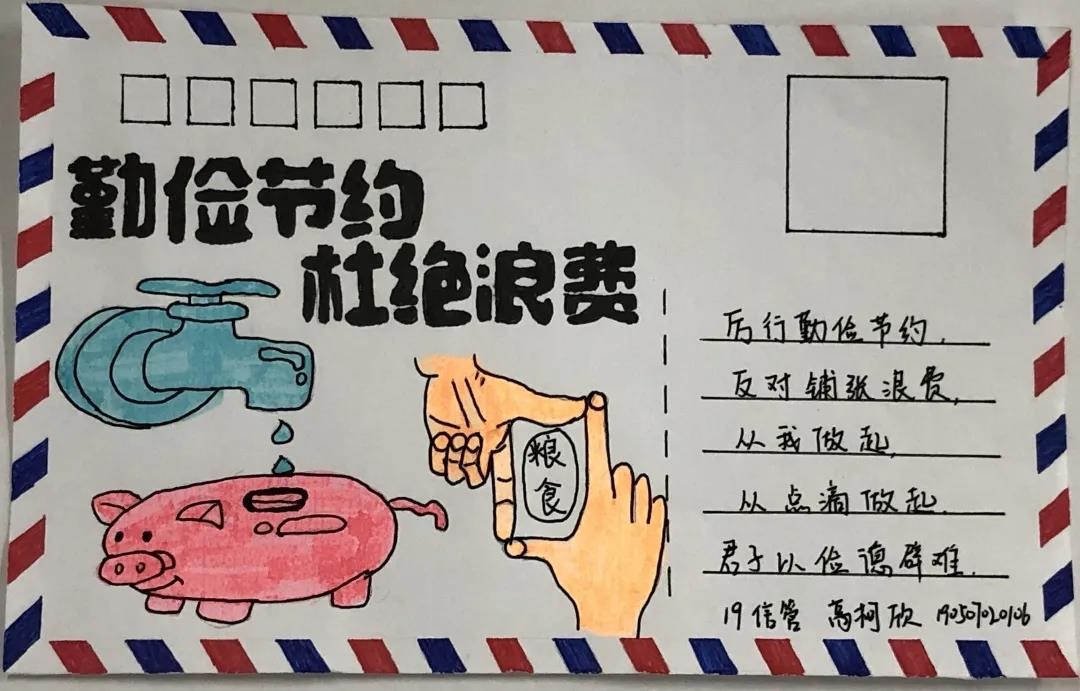 勤俭节约
杜绝浪费
粮
食
厉行勤俭节约,
反对铺张浪费,
从我做起,
从点滴做起.
君子以俭德辟难.
19信管 高柯欣 190507020106